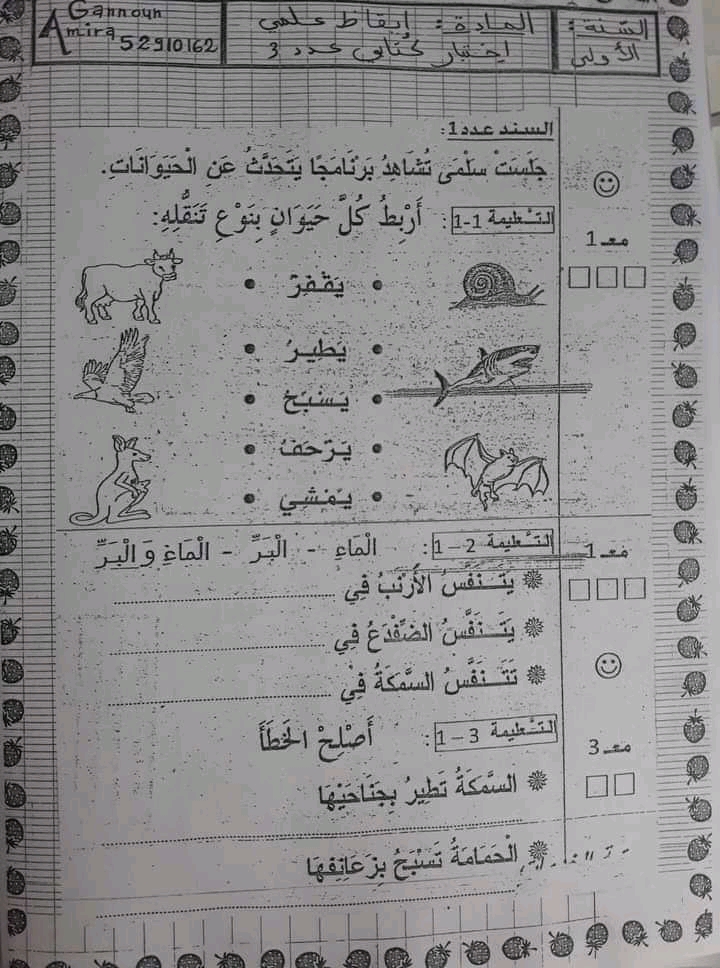 السّنة:
الأولى
المادة: إيقاظ علمي
اختبار كتابي عدد 3
Gannoun
Amira 52910162
السند عدد1:
جَلَسَتْ سَلْمَى تُشَاهِدُ بَرْنَامَجًا يَتَحَدَّثُ عَنِ الْحَيَوَانَاتِ.
التّعليمة 1-1: أَرْبِطُ كُلَّ حَيَوَانٍ بِنَوْعِ تَنَقُّلِهِ:
معـ1
• يَقْفِزُ •
• يَطِيرُ •
• يَسْبَحُ •
• يَزْحَفُ •
• يَمْشِي •
التّعليمة 2 – 1: الْمَاءِ - الْبَرِّ - الْمَاءِ وَ الْبَرِّ
معـ1
يَتَنَفَّسُ الأَرْنَبُ فِي ..............................
يَتَنَفَّسُ الضِّفْدَعُ فِي ..............................
تَتَنَفَّسُ السَّمَكَةُ فِي ..............................
التّعليمة 3 – 1: أَصْلِحْ الخَطَأَ
معـ3
السَّمَكَةُ تَطِيرُ بِجَنَاحَيْهَا
الْحَمَامَةُ تَسْبَحُ بِزَعَانِفِهَا